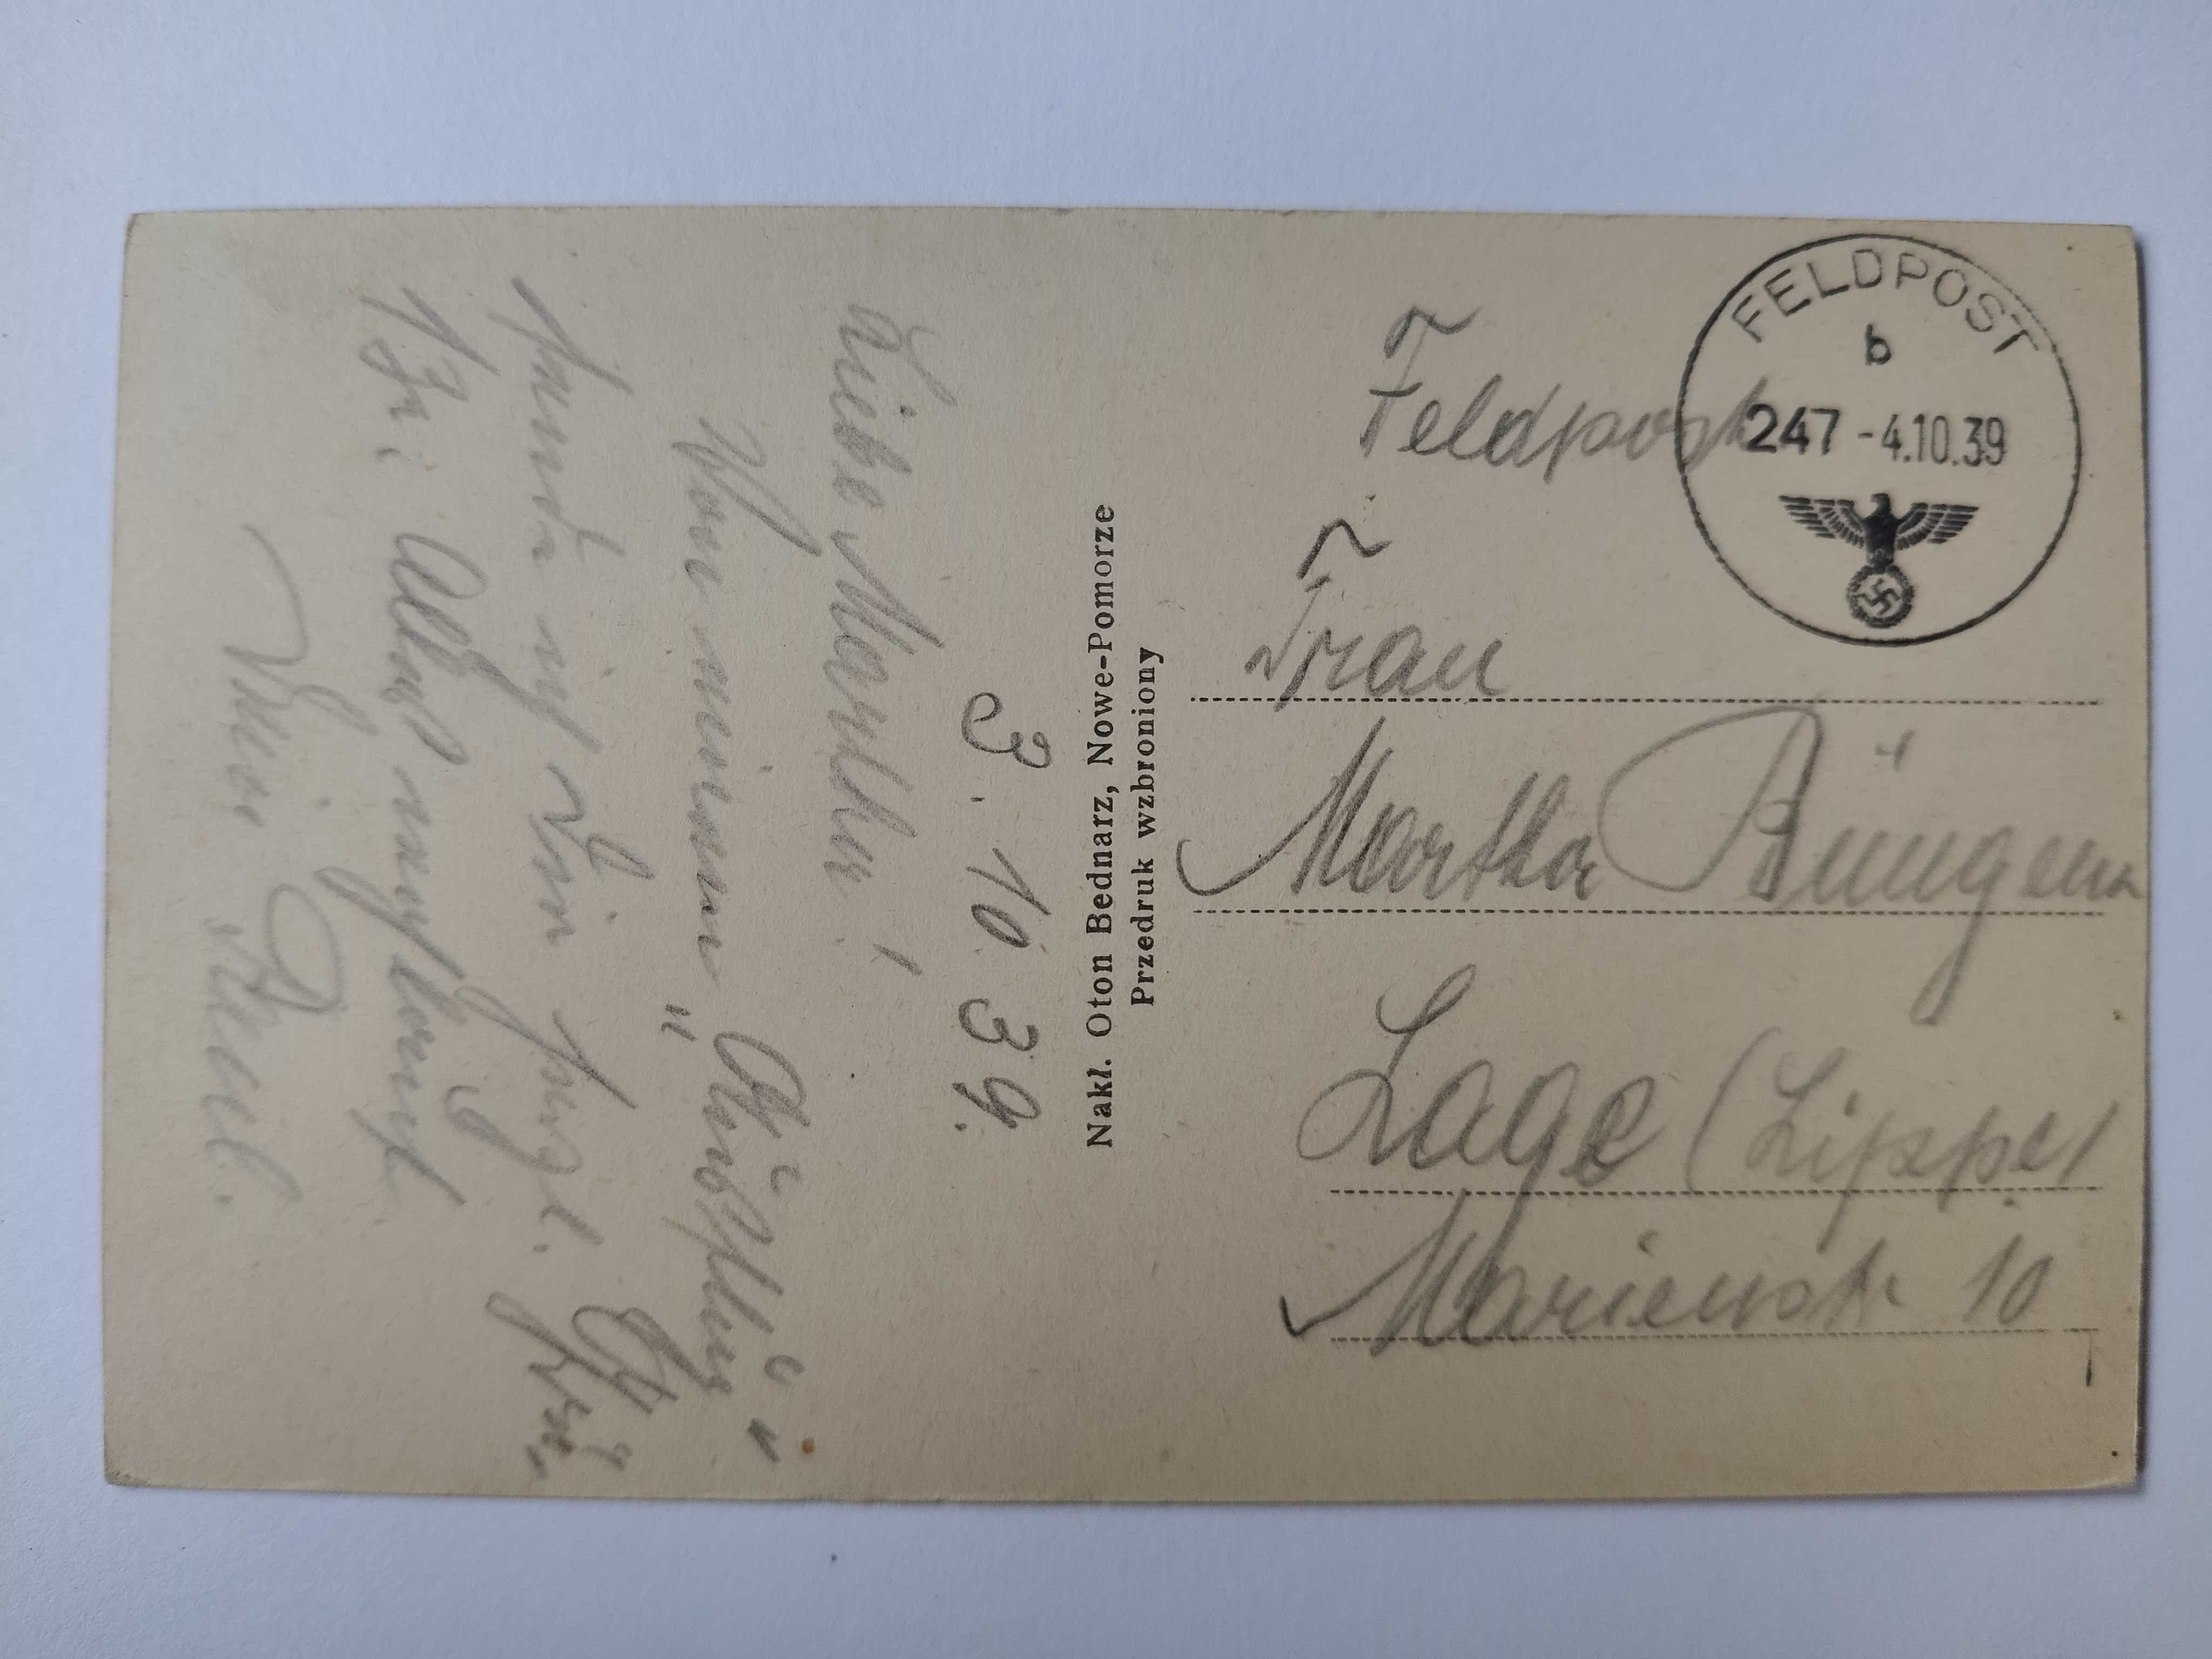 FELDPOST
b
247 -4.10.39
Feldpost
Frau
Martha
Lage (Lippe)
Marienstr 10
Nakl. Oton Bednarz, Nowe-Pomorze
Przedruk wzbroniony
3. 10. 39.
Liebe Martha!
Von meinem
sende ich Dir herzl. Grüße